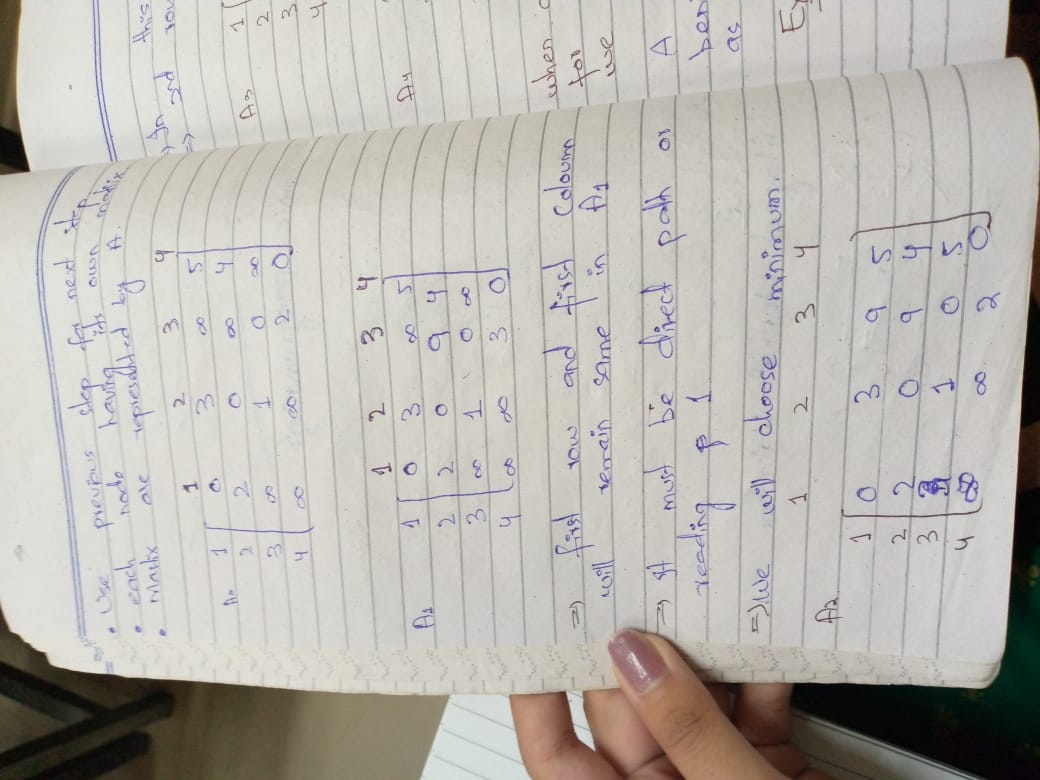 • Use previous step for next step
• each node having its own matrix
• Matrix are represented by A.
1 2 3 4
A₀ 1 0 3 ∞ 5
2 2 0 ∞ 4
3 ∞ 1 0 ∞
4 ∞ ∞ 2 0
1 2 3 4
A₁ 1 0 3 ∞ 5
2 2 0 9 4
3 ∞ 1 0 ∞
4 ∞ ∞ 3 0
⇒ first row and first Coloumn
will remain same in A₁
⇒ It must be direct path or
reading 1
⇒ We will choose minimum.
1 2 3 4
A₂ 1 0 3 9 5
2 2 0 9 4
3 1 0 5
4 ∞ ∞ 2 0
⇒ In this
⇒ 3rd row
A₃ 1
2
3
4
A₄
when
for
we
A
as